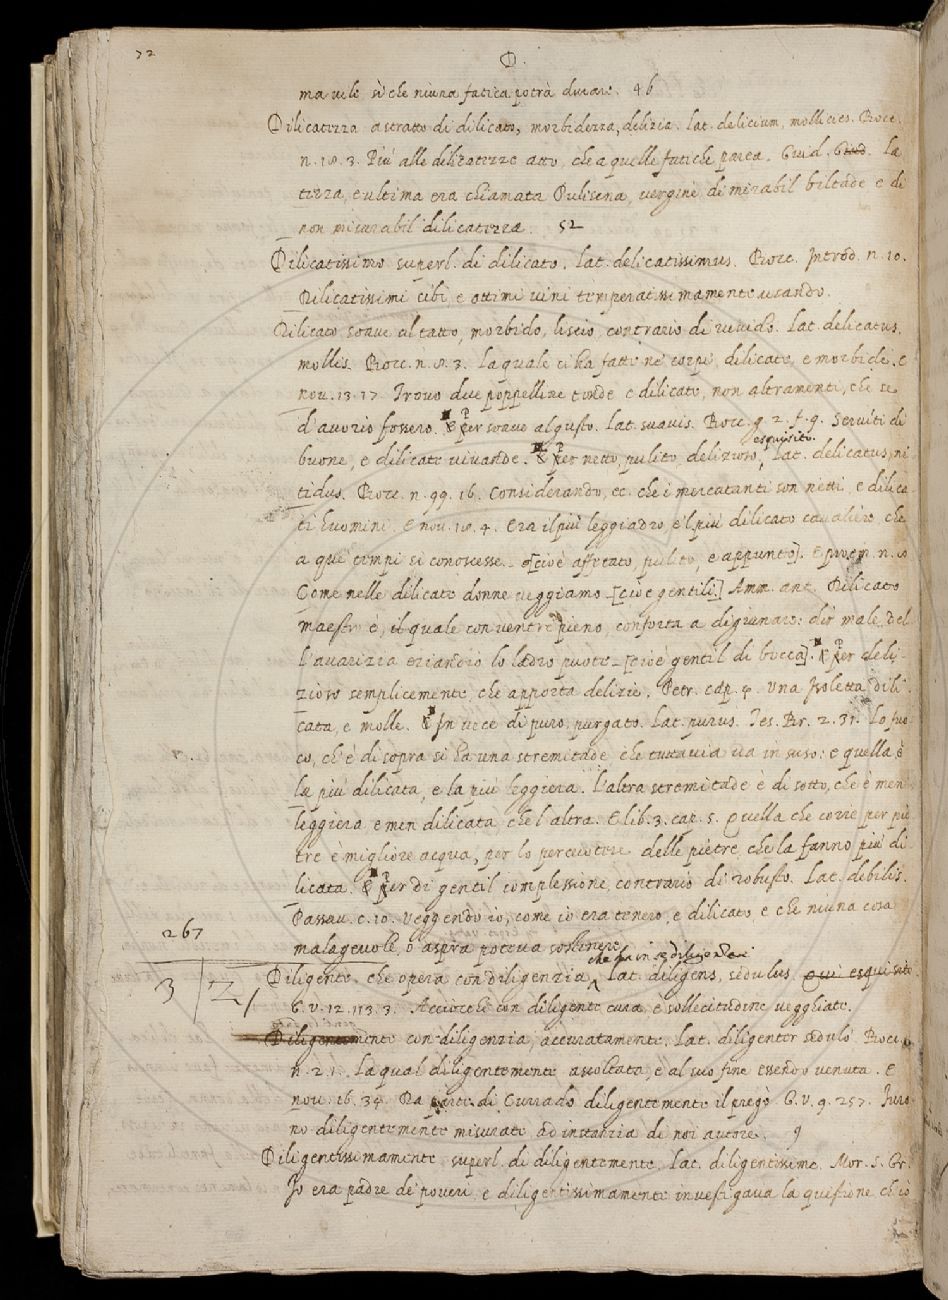 72
D.
ma vile sì che niuna fatica potrà durare. 46
Dilicatezza astratto di dilicato, morbidezza, delizia. Lat. delicium, mollicies. Bocc.
n. 18. 3. Più alle delicatezze atto, che a quelle fatiche parea. Guid. Guid. La
terza, e ultima era chiamata Pulisena, vergine di mirabil biltade e di
non misurabil dilicatezza. 52
Dilicatissimo superl. di dilicato. Lat. delicatissimus. Bocc. Introd. n. 10.
Dilicatissimi cibi, e ottimi vini temperatissimamente usando.
Dilicato soave al tatto, morbido, liscio, contrario di ruvido. Lat. delicatus,
mollis. Bocc. n. 8. 3. La quale ci ha fatte ne' corpi, dilicate, e morbide. E
nov. 13. 17 Trovò due poppelline tonde e dilicate, non altramenti, che se
d'avorio fossero. & P per soave al gusto. Lat. suavis. Bocc. g. 2. f. 9. Serviti di
esquisito.
buone, e dilicate vivande. & P per netto, pulito, delizioso, Lat. delicatus, ni-
tidus. Bocc. n. 99. 16. Considerando, ec. che i mercatanti son netti, e dilica-
ti huomini. E nov. 18. 4. Era il più leggiadro, e 'l più dilicato cavaliere, che
a que' tempi si conoscesse. [cioè affettato, pulito, e appunto]. E proem. n.
Come nelle dilicate donne veggiamo [cioè gentili.] Amm. ant. Dilicato
maestro è, il quale con ventre pieno, conforta a digiunare: dir male, del
l'avarizia eziandio lo ladro puote [cioè gentil di bocca]. & P per deli-
zioso semplicemente, che apporta delizie. Petr. cap. 4. Una Isoletta dili-
cata, e molle. & In vece di puro, purgato. Lat. purus. Tes. Br. 2. 31. Lo fuo-
co, ch'è di sopra si ha una stremitade che tuttavia va in suso: e quella è
la più dilicata, e la più leggiera. L'altra stremitade è di sotto, che è men
leggiera e men dilicata che l'altra. E lib. 3. cap. 5. Quella che corre per pie-
tre è migliore acqua, per lo percuotere delle pietre, che la fanno più di-
licata. & P per di gentil complessione, contrario di robusto. Lat. debilis.
Passav. c. 10. Veggendo io, come io era tenero, e dilicato, e che niuna cosa
267
malagevole, o aspra poteva sostenere.
che ha in se diligenzia
Diligente che opera con diligenzia, Lat. diligens, sedulus esquisito
3 | 21
G. V. 12. 113. 3. Acciocché con diligente cura, e sollecitudine veggiate.
Diligentemente con diligenzia, accuratamente. Lat. diligenter sedulò. Bocc.
n. 2. 1. La qual diligentemente ascoltata, e al suo fine essendo venuta. E
nov. 16. 34. Da parte di Currado diligentemente il pregò. G. V. 9. 257. Furo-
no diligentemente misurate ad instanzia di noi autore. 9
Diligentissimamente superl. di diligentemente. Lat. diligentissime. Mor. S. Gr.
Io era padre de' poveri, e diligentissimamente investigava la quistione ch'io